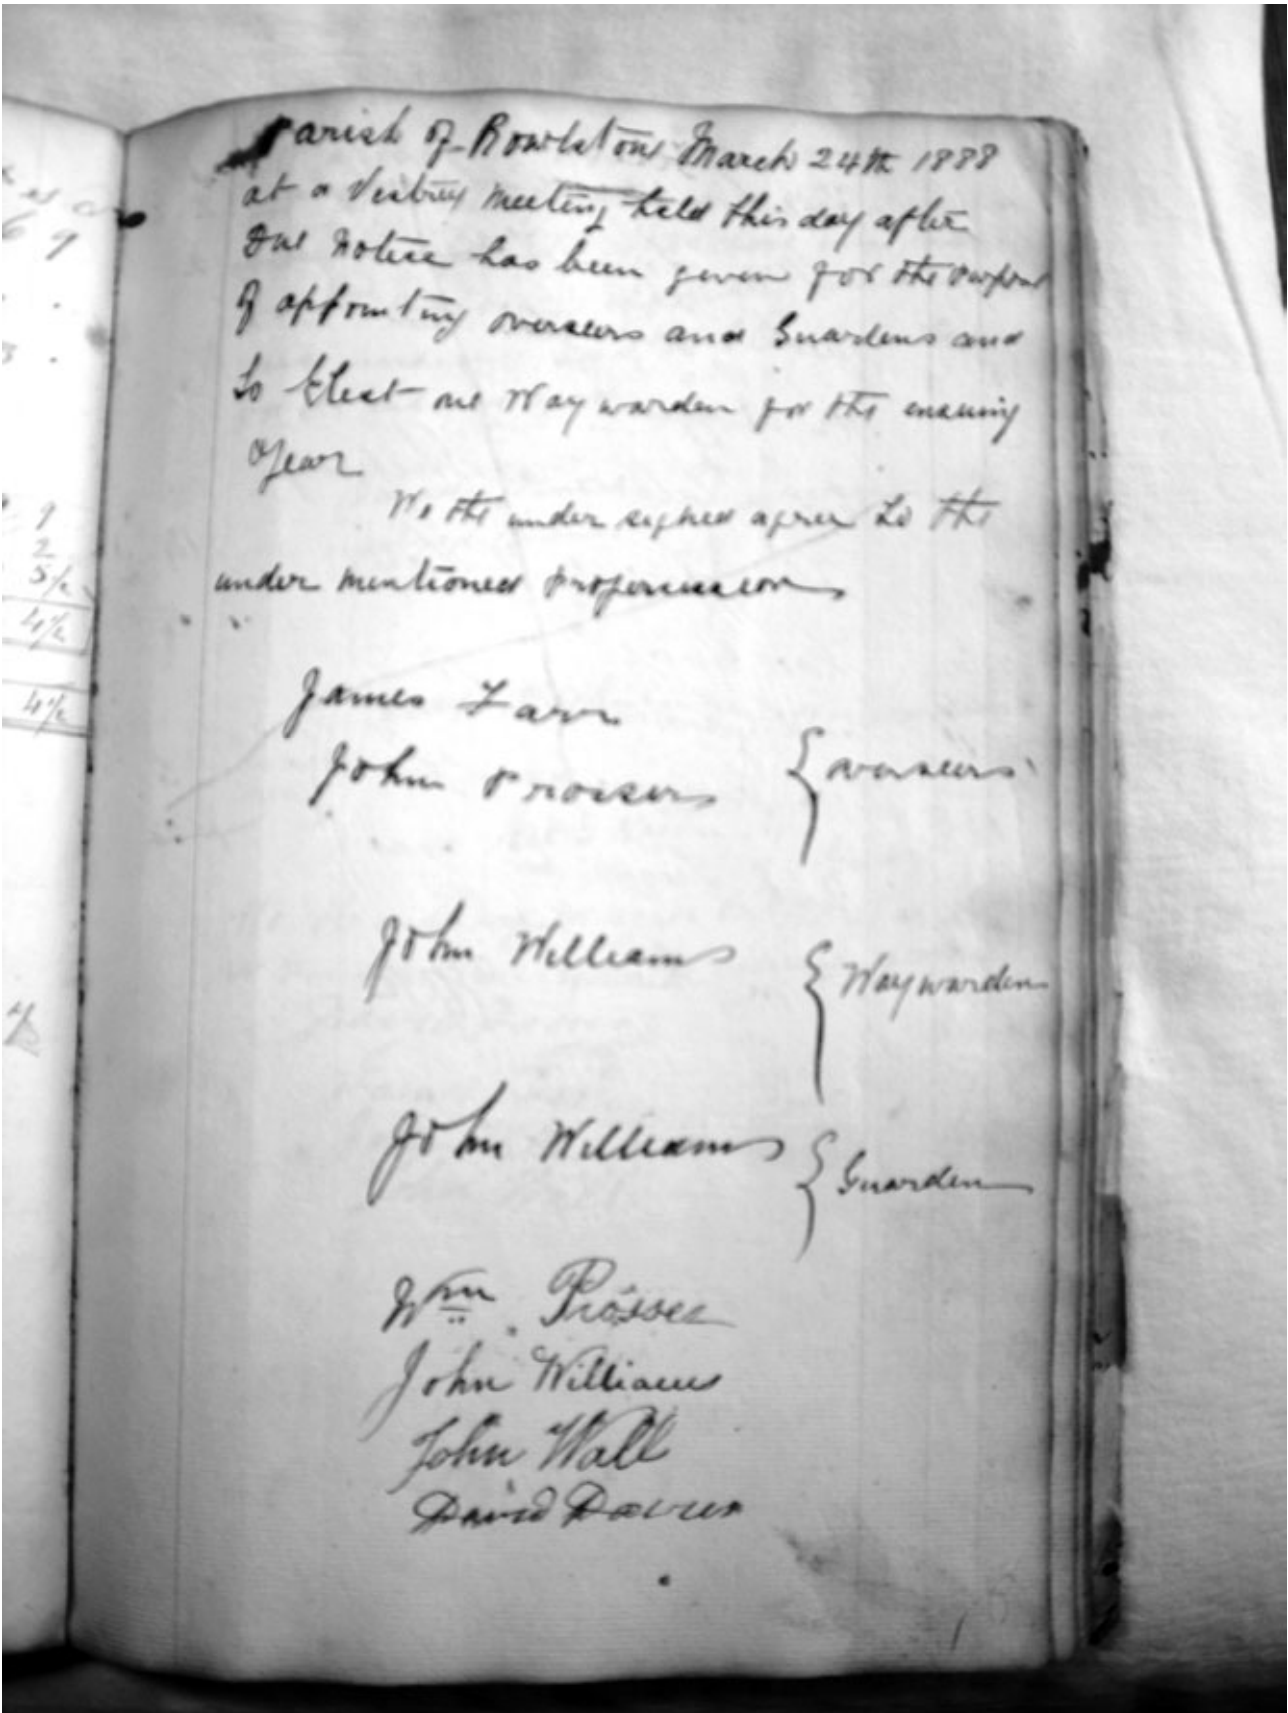 Parish of Rowlstone March 24th 1888
at a Vestrey meeting held this day after
Due Notice has been given for the Purpose
of appointing overseers and Guardens and
to Elect one Way warden for the ensuing
Year
We the under signed agree to the
under mentioned
James Farr
John Prosser { overseers
John Williams { Waywarden
John Williams { Guarden
Wm. Prosser
John Williams
John Wall
David Davies
6 9
9
2
5½
4½
4½